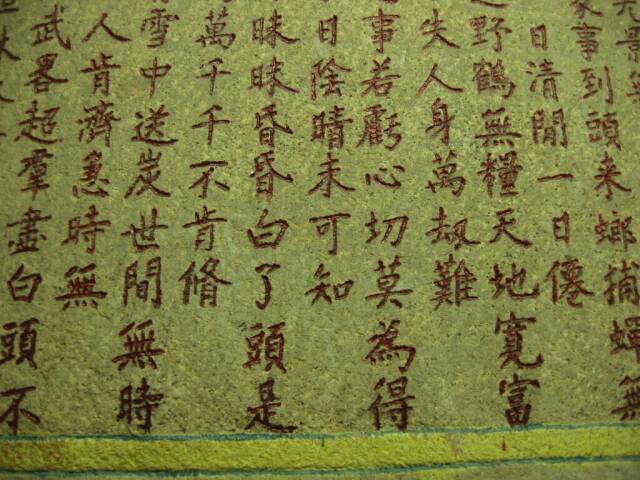 家事到頭来螂捕蟬無
日清閒一日僊
野鶴無糧天地寬富
失人身萬劫難
事若虧心切莫為得
日陰晴未可知
昧昧昏昏白了頭是
萬千千不肯脩
雪中送炭世間無時
人肯濟急時無
武畧超羣盡白頭不